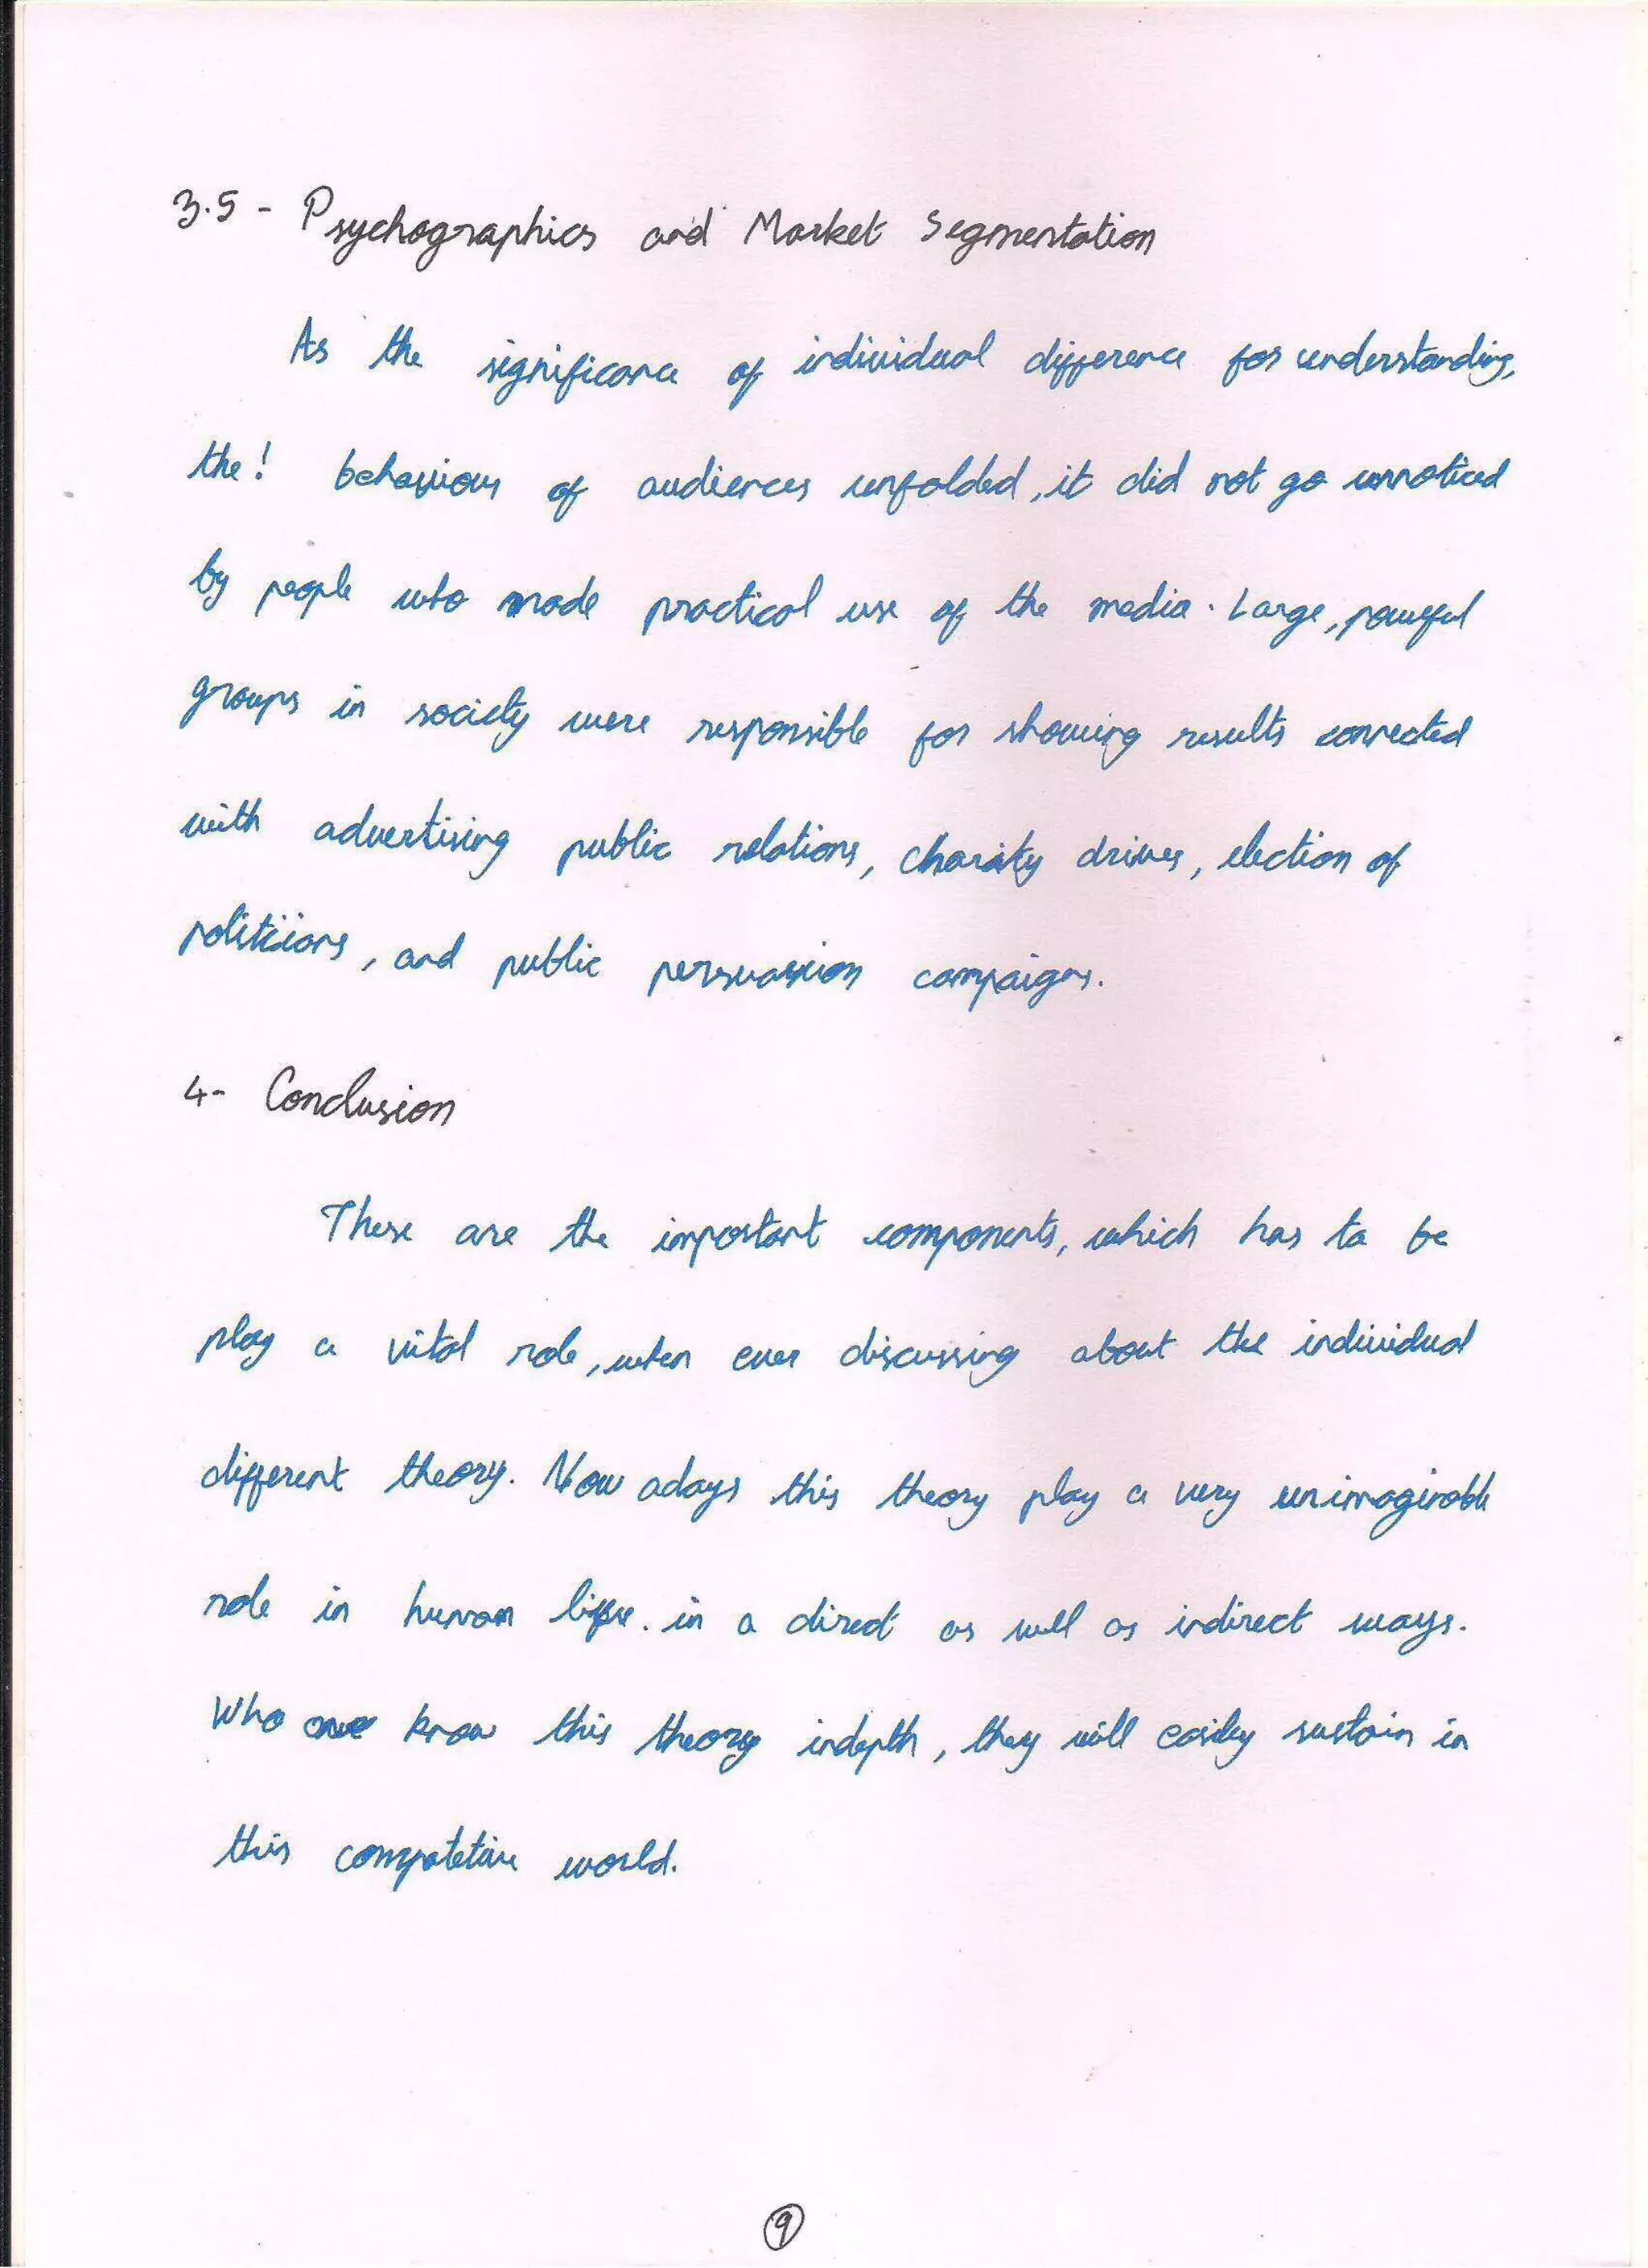 3.5 - Psychographics and Market Segmentation
As the significance of individual difference for understanding,
the! behaviour of audiences unfolded, it did not go unnoticed
by people who made practical use of the media. Large, powerful
groups in society were responsible for showing results connected
with advertising public relations, charity drives, election of
politicians, and public persuasion campaigns.
4- Conclusion
These are the important components, which has to be
play a vital role, when ever discussing about the individual
different theory. Now adays this theory play a very unimaginable
role in human life. in a direct as well as indirect ways.
Who know this theory indepth, they will easily sustain in
this competetive world.
9